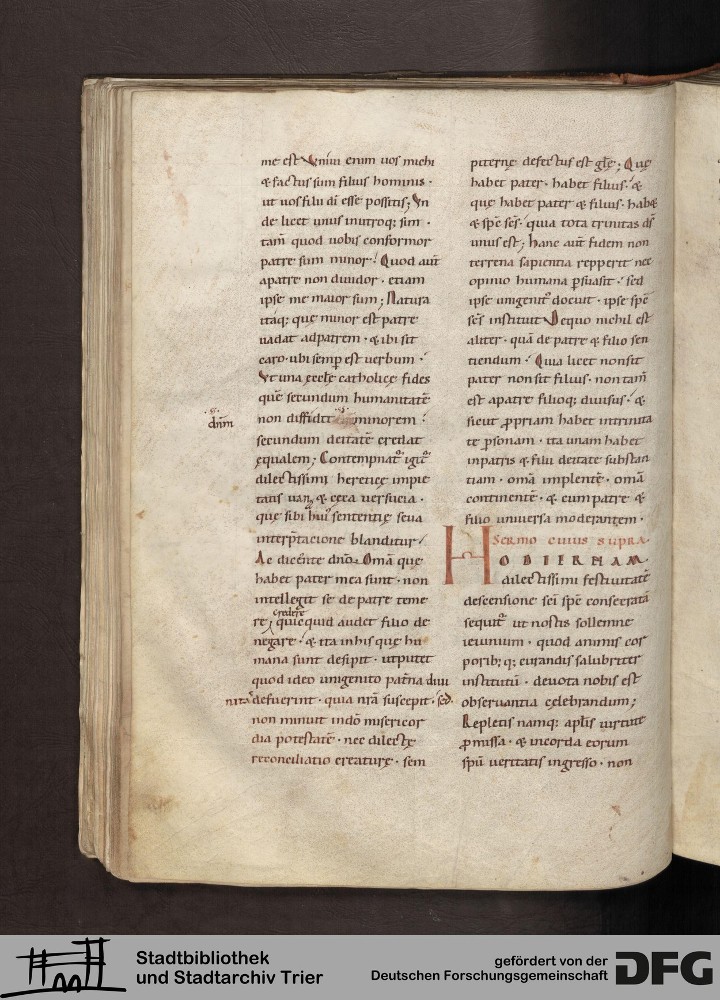 me est Vnum enim uos michi
& factus sum filius hominis ·
ut uos filii dī esse possitis; Vn
de licet unus inutroq; sim ·
tam̄ quod uobis conformor
patre sum minor · Quod aūt
apatre non diuidor · etiam
ipse me maior sum; Natura
itaq; quę minor est patre
uadat adpatrem · & ibi sit
caro · ubi semp est uerbum ·
Vt una ęccl̄ę catholicę fides
quē secundum humanitatē
non diffidit minorem ·
dn̄m
secundum deitatē credat
ęqualem; Contempnat' igit'
dilectissimi hereticę impie
tatis uana & cęca uersucia ·
quę sibi hui' sententię seua
interp̄tacione blanditur ·
Ac dicente dn̄o · Omā quę
habet pater mea sunt · non
intellegit se de patre teme
credere
re; quicquid audet filio de
negare · & ita inhis quę hu
mana sunt desipit · utputet
quod ideo unigenito pat̄na diui
nita defuerint · quia nr̄a suscepit · sed
non minuit indō misericor
dia potestatē · nec dilectę
reconciliatio creaturę · sem
piternę defectus est gl̄ę; Quę
habet pater · habet filius · &
quę habet pater & filius · hab&
& sp̄c sc̄s · quia tota trinitas ds̄
unus est; hanc aūt fidem non
terrena sapientia repperit nec
opinio humana p̄suasit · sed
ipse unigenit' docuit · ipse sp̄c
sc̄s instituit Dequo nichil est
aliter · quā de patre & filio sen
tiendum · Quia licet nonsit
pater nonsit filius · non tam̄
est apatre filioq; diuisus · &
sicut ꝓpriam habet intrinita
te p̄sonam · ita unam habet
inpatris & filii deitate substan
tiam · omā implentē · omā
continentē · & cum patre &
filio uniuersa moderantem ·
SERMO CUIUS SUPRA ·
HODIERNAM
dilectissimi festiuitatē
descensione sc̄i sp̄c consecratā
sequit' ut nostis sollemne
ieiunium · quod animis cor
porib; q; curandis salubriter
institutū · deuota nobis est
obseruantia cęlebrandum;
Repletis namq; apl̄is uirtute
ꝓmissa · & incorda eorum
sp̄u ueritatis ingresso · non
Stadtbibliothek
und Stadtarchiv Trier
gefördert von der
Deutschen Forschungsgemeinschaft
DFG